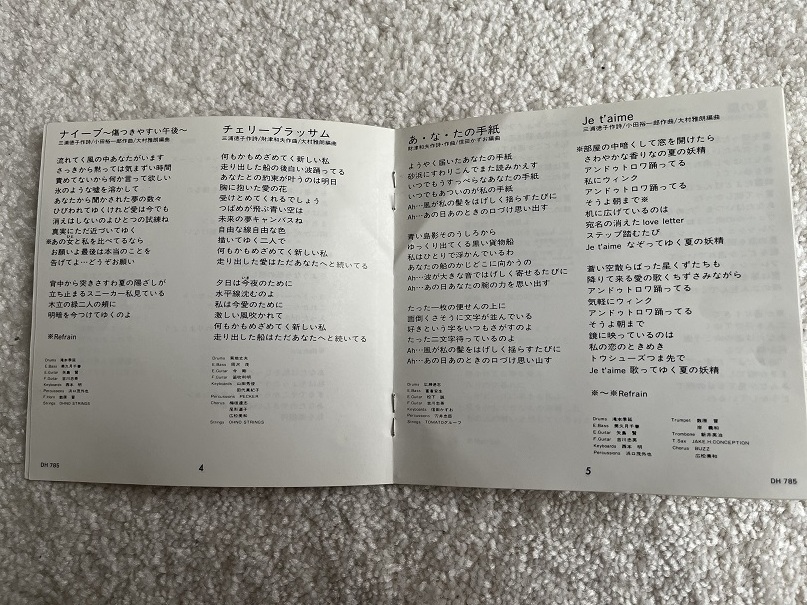 ナイーブ〜傷つきやすい午後〜
三浦徳子作詩/小田裕一郎作曲/大村雅朗編曲
流れてく風の中あなたがいます
さっきから黙っては気まずい時間
責めてないから何か言って欲しい
氷のような嘘を溶かして
あなたから聞かされた夢の数々
ひびわれてゆくけれど愛は今でも
消えはしないのよひとつの試練ね
真実にただ近づいてゆく
※あの女と私を比べてるなら
お願いよ最後は本当のことを
告げてよ…どうぞお願い
背中から突きさすわ夏の陽ざしが
立ち止まるスニーカー私見ている
木立の緑二人の頬に
明暗を今つけてゆくのよ
※Refrain
Drums 滝本季延
E.Bass 美久月千春
E.Guitar 矢島 賢
F.Guitar 吉川忠英
Keyboards 西本 明
Percussions 浜口茂外也
Strings OHNO STRINGS
DH 785
4
チェリーブラッサム
三浦徳子作詩/財津和夫作曲/大村雅朗編曲
何もかもめざめてく新しい私
走り出した船の後白い波踊ってる
あなたとの約束が叶うのは明日
胸に抱いた愛の花
受けとめてくれるでしょう
つばめが飛ぶ青い空は
未来の夢キャンバスね
自由な線自由な色
描いてゆく二人で
何もかもめざめてく新しい私
走り出した愛はただあなたへと続いてる
夕日は今夜のために
水平線沈むのよ
私は今愛のために
激しい風吹かれて
何もかもめざめてく新しい私
走り出した船はただあなたへと続いてる
Drums
E.Bass
E.Guitar 今 剛
F.Guitar 笛吹利明
Keyboards 山田秀俊
田代真紀子
Percussions PECKER
Chorus
尾形道子
広松美和
Strings OHNO STRINGS
あ・な・たの手紙
財津和夫作詩・作曲/信田かずお編曲
ようやく届いたあなたの手紙
砂浜にすわりこんでまた読みかえす
いつでもうすっぺらなあなたの手紙
いつでもあついのが私の手紙
Ah…風が私の髪をはげしく揺らすたびに
Ah…あの日あのときの口づけ思い出す
青い島影そのうしろから
ゆっくり出てくる黒い貨物船
私はひとりで浮かんでいるわ
あなたの船のかじどこに向かうの
Ah…波が大きな音ではげしく寄せるたびに
Ah…あの日あのあなたの腕の力を思い出す
たった一枚の便せんの上に
面倒くさそうに文字が並んでいる
好きという字をいつもさがすのよ
たった二文字待っているのよ
Ah…風が私の髪をはげしく揺らすたびに
Ah…あの日あのときの口づけ思い出す
Drums
E.Bass
E.Guitar 松下 誠
F.Guitar 吉川忠英
Keyboards 信田かずお
Percussions
Strings TOMATOグループ
Je t'aime
三浦徳子作詩/小田裕一郎作曲/大村雅朗編曲
※部屋の中暗くして窓を開けたら
さわやかな香りなの夏の妖精
アンドゥトロワ踊ってる
私にウィンク
アンドゥトロワ踊ってる
そうよ朝まで※
机に広げているのは
宛名の消えた love letter
ステップ踏むたび
Je t'aime なぞってゆく夏の妖精
蒼い空散らばった星くずたちも
降りて来る愛の歌くちずさみながら
アンドゥトロワ踊ってる
気軽にウィンク
アンドゥトロワ踊ってる
そうよ朝まで
鏡に映っているのは
私の恋のときめき
トウシューズつま先で
Je t'aime 歌ってゆく夏の妖精
※〜※Refrain
Drums 滝本季延
E.Bass 美久月千春
E.Guitar 矢島 賢
F.Guitar 吉川忠英
Keyboards 西本 明
Percussions 浜口茂外也
Trumpet 数原 晋
Trombone 新井英治
T.Sax JAKE.H.CONCEPTION
Chorus BUZZ
広松美和
5
DH 785